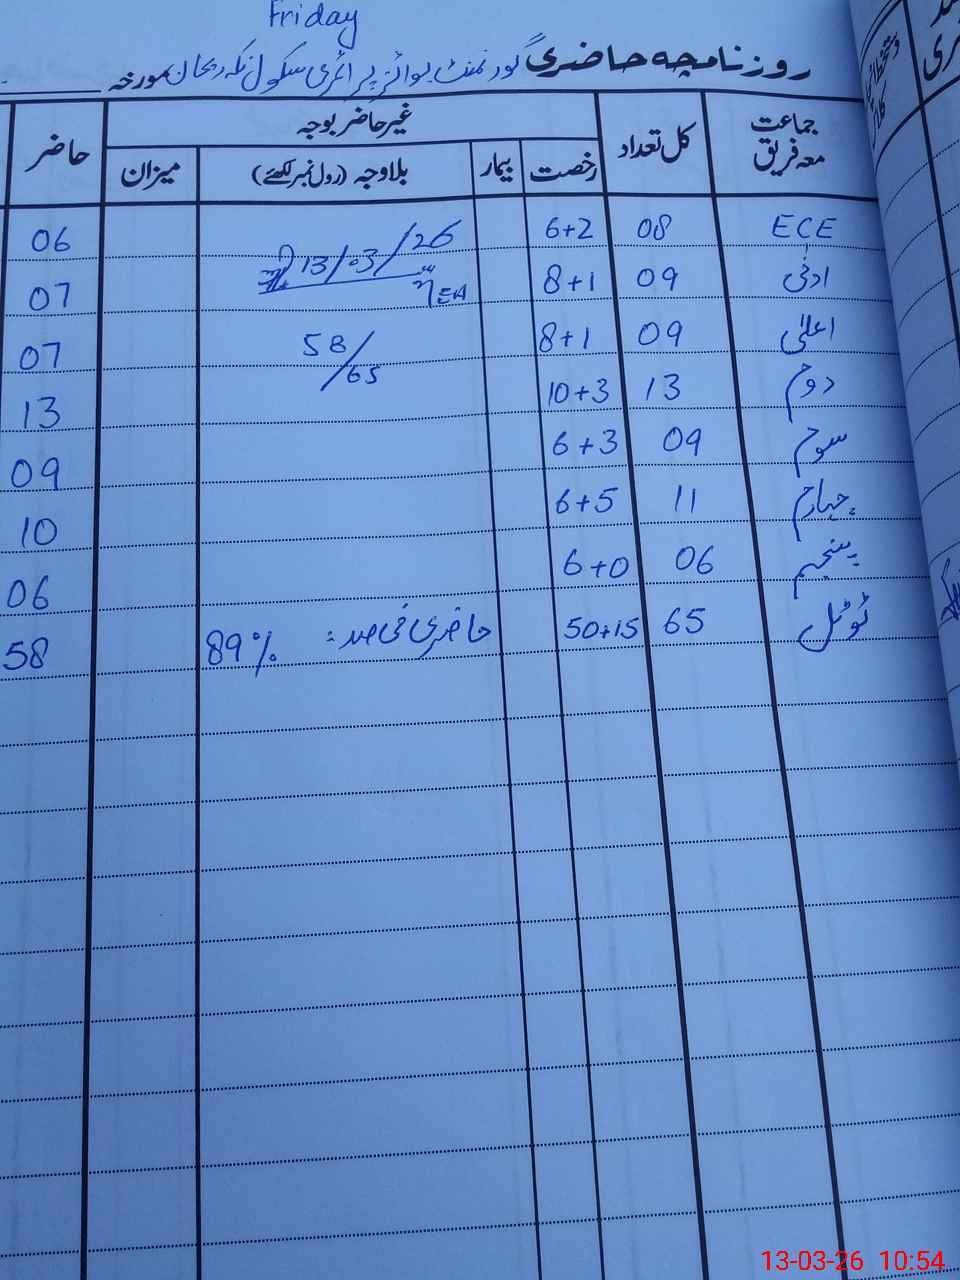 Friday
روزنامچہ حاضری گورنمنٹ بوائز پرائمری سکول مکہ ریحان مورخہ
جماعت معہ فریق کل تعداد غیر حاضر بوجہ حاضر
رخصت بیمار بلاوجہ (رول نمبر لکھئے) میزان
ECE 08 6+2 06
13/03/26
ادنیٰ 09 8+1 07
اعلیٰ 09 8+1 58/65 07
دوم 13 10+3 13
سوم 09 6+3 09
چہارم 11 6+5 10
پنجم 06 6+0 06
ٹوٹل 65 50+15 حاضری فی صد: 89% 58
13-03-26 10:54